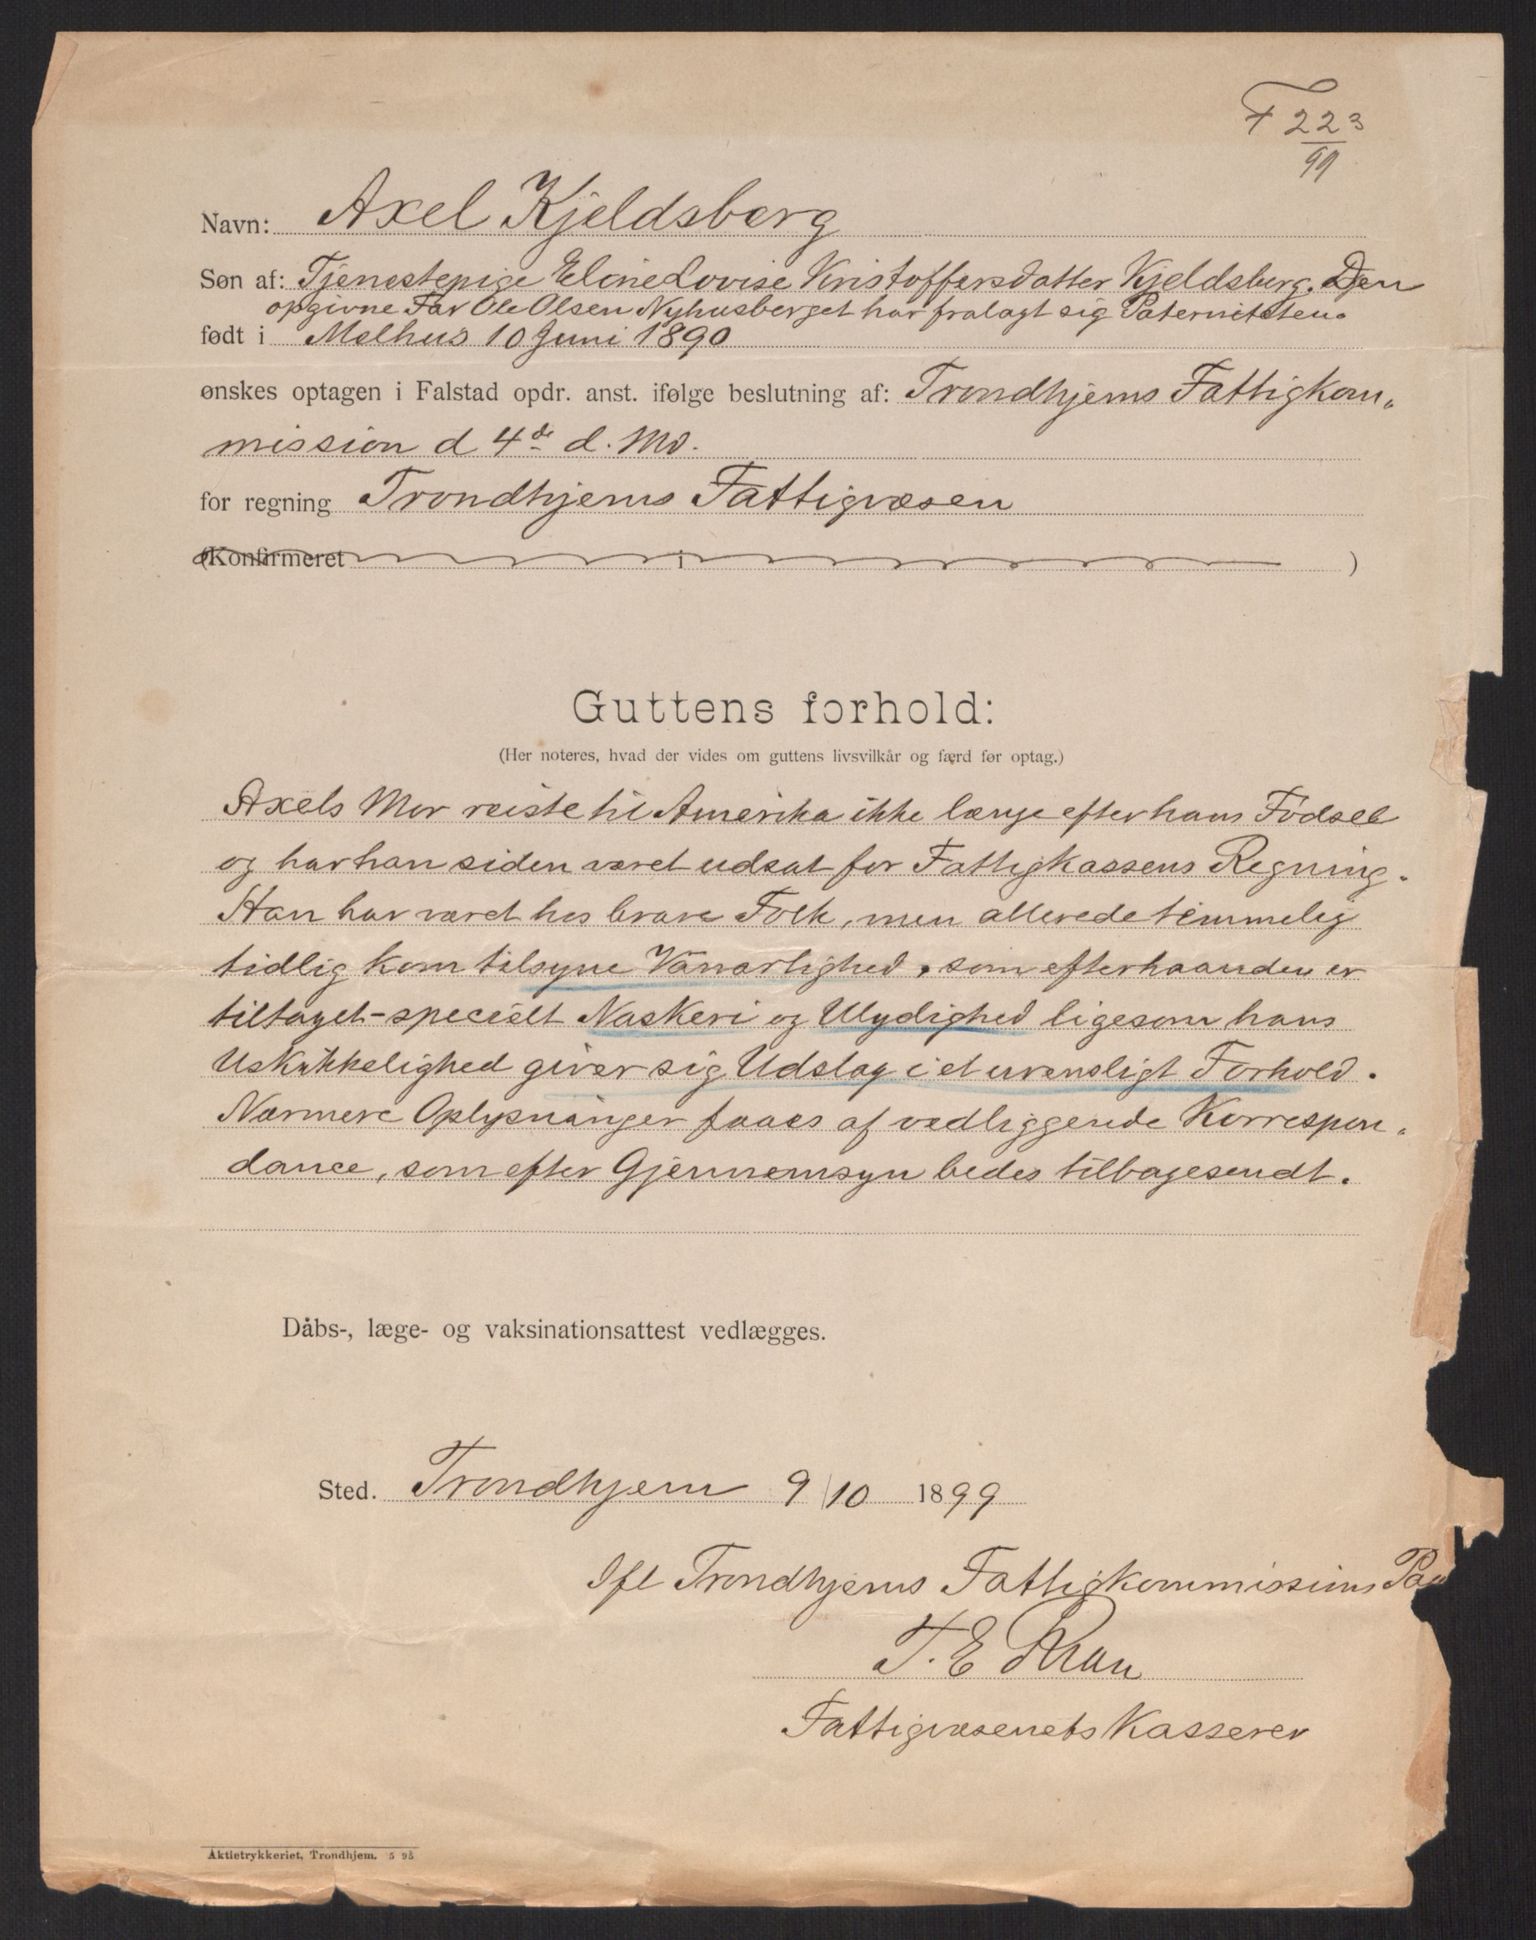 F 223
99
Navn: Axel Kjeldsberg
Søn af: Tjenestepige Eline Lovise Kristoffersdatter Kjeldsberg. Den
opgivne Far Ole Olsen Nyhusberget har fralagt sig Paterniteten.
født i Melhus 10 Juni 1890
ønskes optagen i Falstad opdr. anst. ifølge beslutning af: Trondhjems Fattigkom-
mission d 4de d. Md.
for regning Trondhjems Fattigvæsen
(Konfirmeret i )
Guttens forhold:
(Her noteres, hvad der vides om guttens livsvilkår og færd før optag.)
Axels Mor reiste til Amerika ikke længe efter hans Fødsel
og har han siden været udsat for Fattigkassens Regning.
Han har været hos brave Folk, men allerede temmelig
tidlig kom tilsyne Vanartighed, som efterhaanden er
tiltaget - specielt Naskeri og Ulydighed ligesom hans
Uskikkelighed giver sig Udslag i et urensligt Forhold.
Nærmere Oplysninger faaes af vedliggende Korrespon-
dance, som efter Gjennemsyn bedes tilbagesendt.
Dåbs-, læge- og vaksinationsattest vedlægges.
Sted. Trondhjem 9/10 1899
Ifl Trondhjems Fattigkommissions
T. E.
Fattigvæsenets Kasserer
Aktietrykkeriet, Trondhjem. 5 95